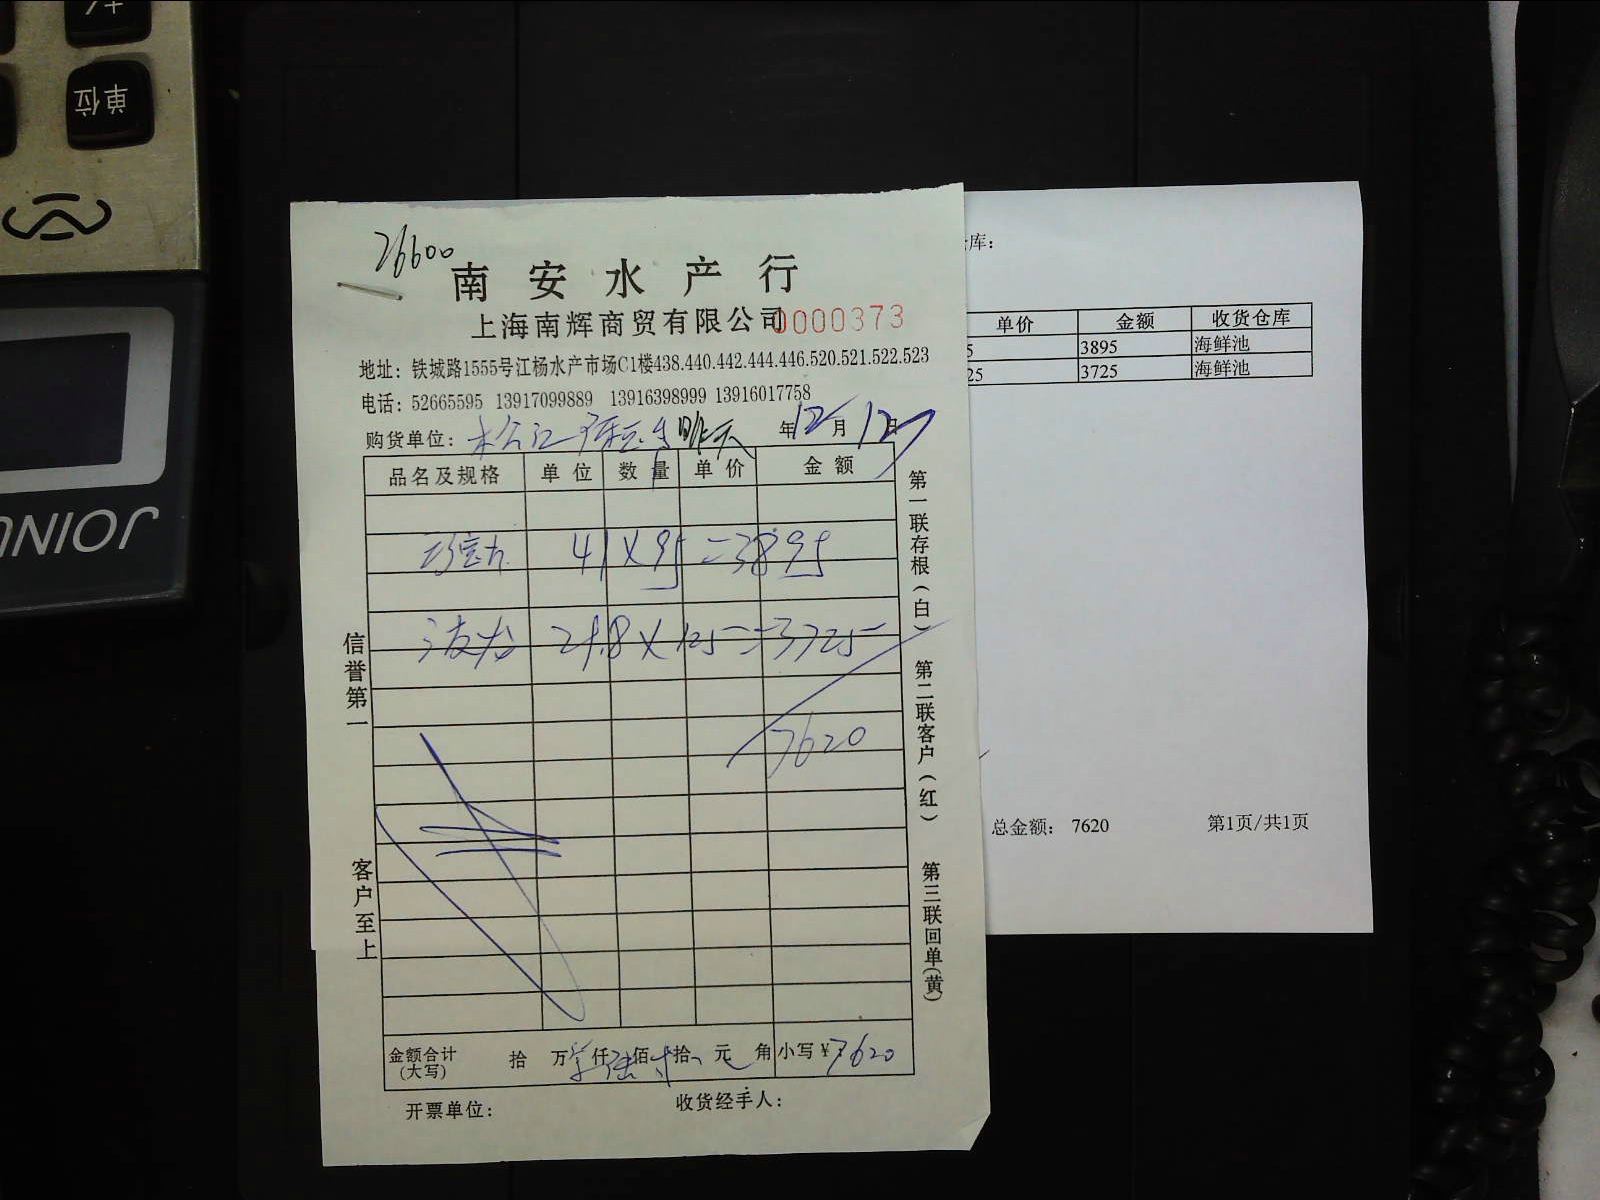 单位
JOINU
26600
南安水产行
上海南辉商贸有限公司 0000373
地址：铁城路1555号江杨水产市场C1楼438.440.442.444.446.520.521.522.523
电话：52665595 13917099889 13916398999 13916017758
购货单位：松江 昨天 年12月12日
品名及规格 单位 数量 单价 金额
41×95=3895
29.8×125=3725
7620
金额合计(大写) 拾 万 仟 佰 拾 元 角 小写¥7620
开票单位： 收货经手人：
信誉第一
客户至上
第一联存根(白)
第二联客户(红)
第三联回单(黄)
库：
单价 金额 收货仓库
5 3895 海鲜池
25 3725 海鲜池
总金额： 7620 第1页/共1页